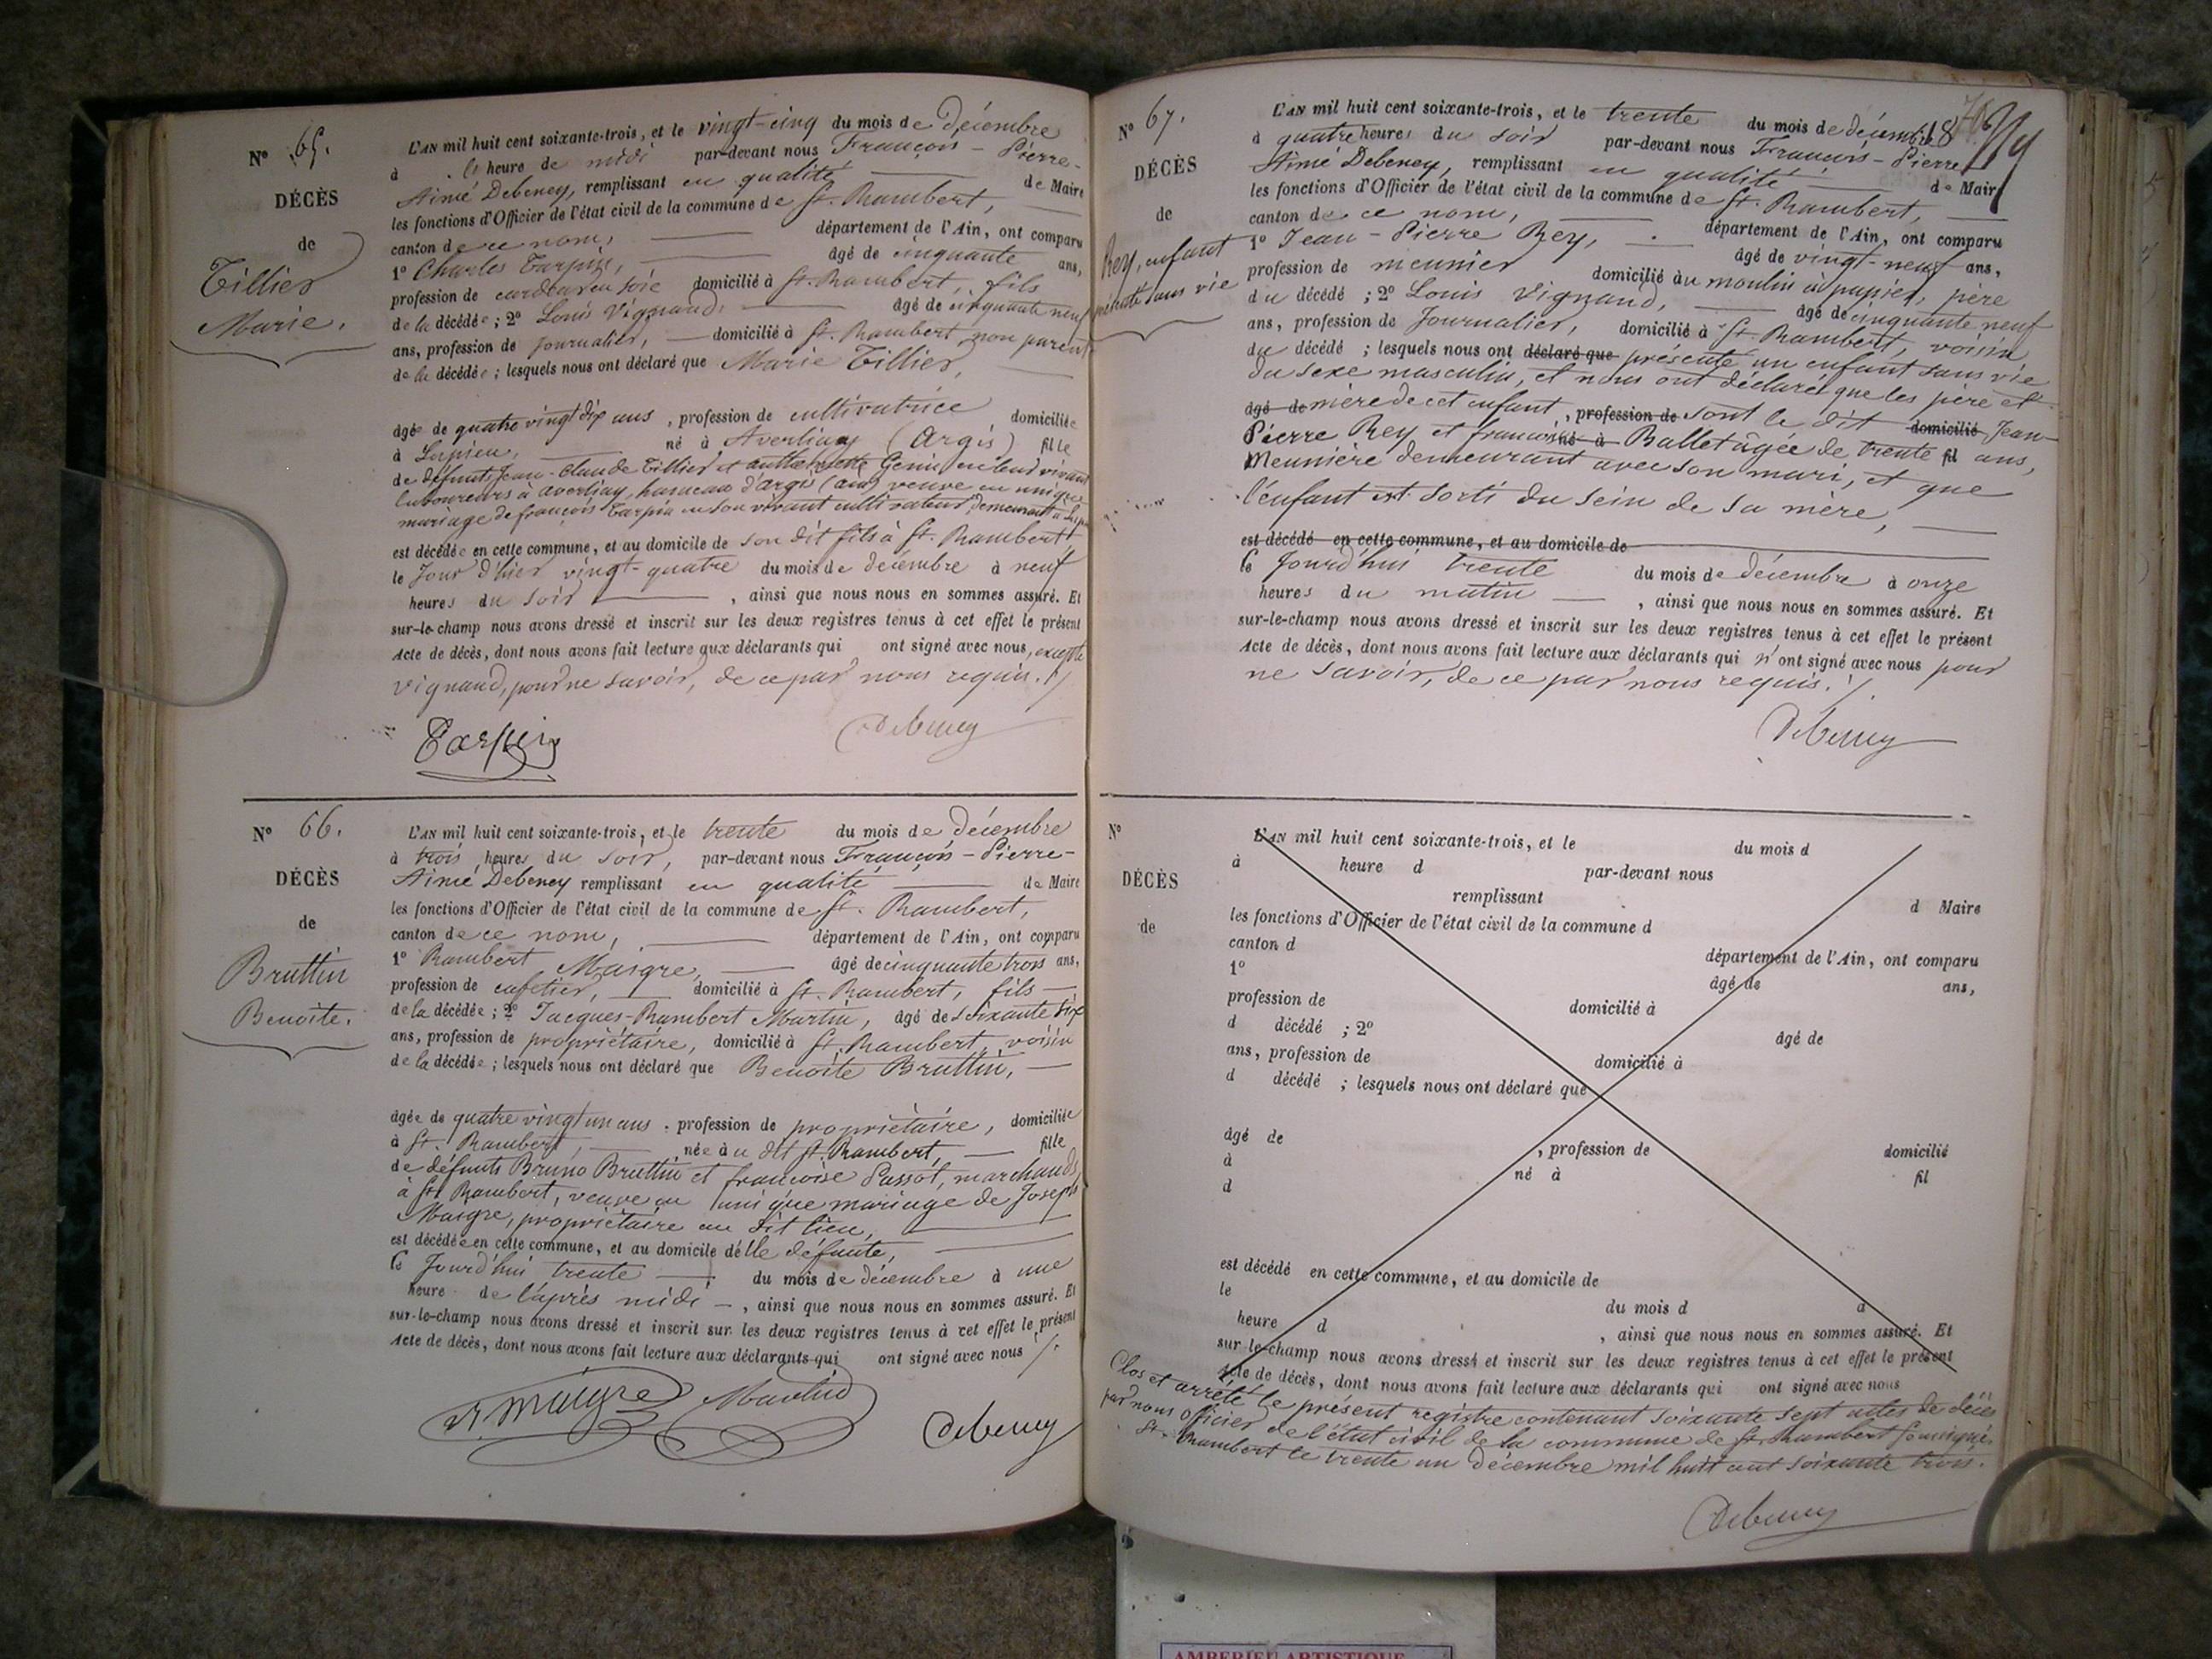 N° 65.
DÉCÈS
de
Tillier
Marie.
L'AN mil huit cent soixante-trois, et le vingt-cinq du mois de Décembre
à l' heure de midi par-devant nous François-Pierre-
Aimé Debeney, remplissant en qualité de Maire
les fonctions d'Officier de l'état civil de la commune de St. Rambert,
canton de ce nom, département de l'Ain, ont comparu
1° Charles Tarpin, âgé de cinquante ans,
profession de cardeur en soie domicilié à St. Rambert, fils
de la décédée ; 2° Louis Vignand, âgé de cinquante neuf
ans, profession de journalier, domicilié à St. Rambert, non parent
de la décédée ; lesquels nous ont déclaré que Marie Tillier,
âgée de quatre vingt dix ans, profession de cultivatrice domiciliée
à Lupieu, né à Averliaz (Argis) fille
de défunts Jean-Claude Tillier et Genin en leur vivant
laboureurs à averliaz, hameau d'argis (ain) veuve en unique
mariage de françois Tarpin en son vivant cultivateur, demeurant à
est décédée en cette commune, et au domicile de son dit fils à St. Rambert
le Jour d'hier vingt-quatre du mois de décembre à neuf
heures du soir , ainsi que nous nous en sommes assuré. Et
sur-le-champ nous avons dressé et inscrit sur les deux registres tenus à cet effet le présent
Acte de décès, dont nous avons fait lecture aux déclarants qui ont signé avec nous, excepté
Vignand, pour ne savoir, de ce par nous requis./
Tarpin Debeney
N° 66.
DÉCÈS
de
Bruttin
Benoite.
L'AN mil huit cent soixante-trois, et le trente du mois de décembre
à trois heures du soir, par-devant nous François-Pierre-
Aimé Debeney remplissant en qualité de Maire
les fonctions d'Officier de l'état civil de la commune de St. Rambert,
canton de ce nom, département de l'Ain, ont comparu
1° Rambert Maigre, âgé de cinquante trois ans,
profession de cafetier, domicilié à St. Rambert, fils
de la décédée ; 2° Jacques-Rambert Martin, âgé de soixante six
ans, profession de propriétaire, domicilié à St. Rambert, voisin
de la décédée ; lesquels nous ont déclaré que Benoite Bruttin,
âgée de quatre vingt un ans, profession de propriétaire, domiciliée
à St. Rambert, née à u dit St. Rambert, fille
de défunts Bruno Bruttin et françoise Passot, marchands
à St. Rambert, veuve en unique mariage de Joseph
Maigre, propriétaire au dit lieu,
est décédée en cette commune, et au domicile de lle défunte,
le Jourd'hui trente du mois de décembre à une
heure de l'après midi , ainsi que nous nous en sommes assuré. Et
sur-le-champ nous avons dressé et inscrit sur les deux registres tenus à cet effet le présent
Acte de décès, dont nous avons fait lecture aux déclarants qui ont signé avec nous /.
R. Maigre Martin Debeney
N° 67.
DÉCÈS
de
Rey, enfant
présenté sans vie
L'AN mil huit cent soixante-trois, et le trente du mois de décembre
à quatre heures du soir par-devant nous François-Pierre
Aimé Debeney, remplissant en qualité de Maire
les fonctions d'Officier de l'état civil de la commune de St. Rambert,
canton de ce nom, département de l'Ain, ont comparu
1° Jean-Pierre Rey, âgé de vingt-neuf ans,
profession de meunier domicilié à u moulin à papier, père
du décédé ; 2° Louis Vignand, âgé de cinquante neuf
ans, profession de Journalier, domicilié à St. Rambert, voisin
du décédé ; lesquels nous ont déclaré que présenté un enfant sans vie
du sexe masculin, et nous ont déclaré que les père et
âgé de mère de cet enfant, profession de sont le dit domicilié Jean-
Pierre Rey et françoise né à Ballet âgée de trente fil ans,
Meunière demeurant avec son mari, et que
l'enfant est sorti du sein de sa mère,
est décédé en cette commune, et au domicile de
le Jourd'hui trente du mois de décembre à onze
heures du matin , ainsi que nous nous en sommes assuré. Et
sur-le-champ nous avons dressé et inscrit sur les deux registres tenus à cet effet le présent
Acte de décès, dont nous avons fait lecture aux déclarants qui n'ont signé avec nous pour
ne savoir, de ce par nous requis./.
Debeney
N°
DÉCÈS
de
L'AN mil huit cent soixante-trois, et le du mois d
à heure d par-devant nous
remplissant d Maire
les fonctions d'Officier de l'état civil de la commune d
canton d département de l'Ain, ont comparu
1° âgé de ans,
profession de domicilié à
d décédé ; 2° âgé de
ans, profession de domicilié à
d décédé ; lesquels nous ont déclaré que
âgé de , profession de domicilié
à né à fil
d
est décédé en cette commune, et au domicile de
le du mois d à
heure d , ainsi que nous nous en sommes assuré. Et
sur-le-champ nous avons dressé et inscrit sur les deux registres tenus à cet effet le présent
Acte de décès, dont nous avons fait lecture aux déclarants qui ont signé avec nous
Clos et arrêté le présent registre contenant soixante sept actes de décès
par nous Officier de l'état civil de la commune de St. Rambert soussigné.
St. Rambert le trente un décembre mil huit cent soixante trois.
Debeney
AMBERIEU ARTISTIQUE